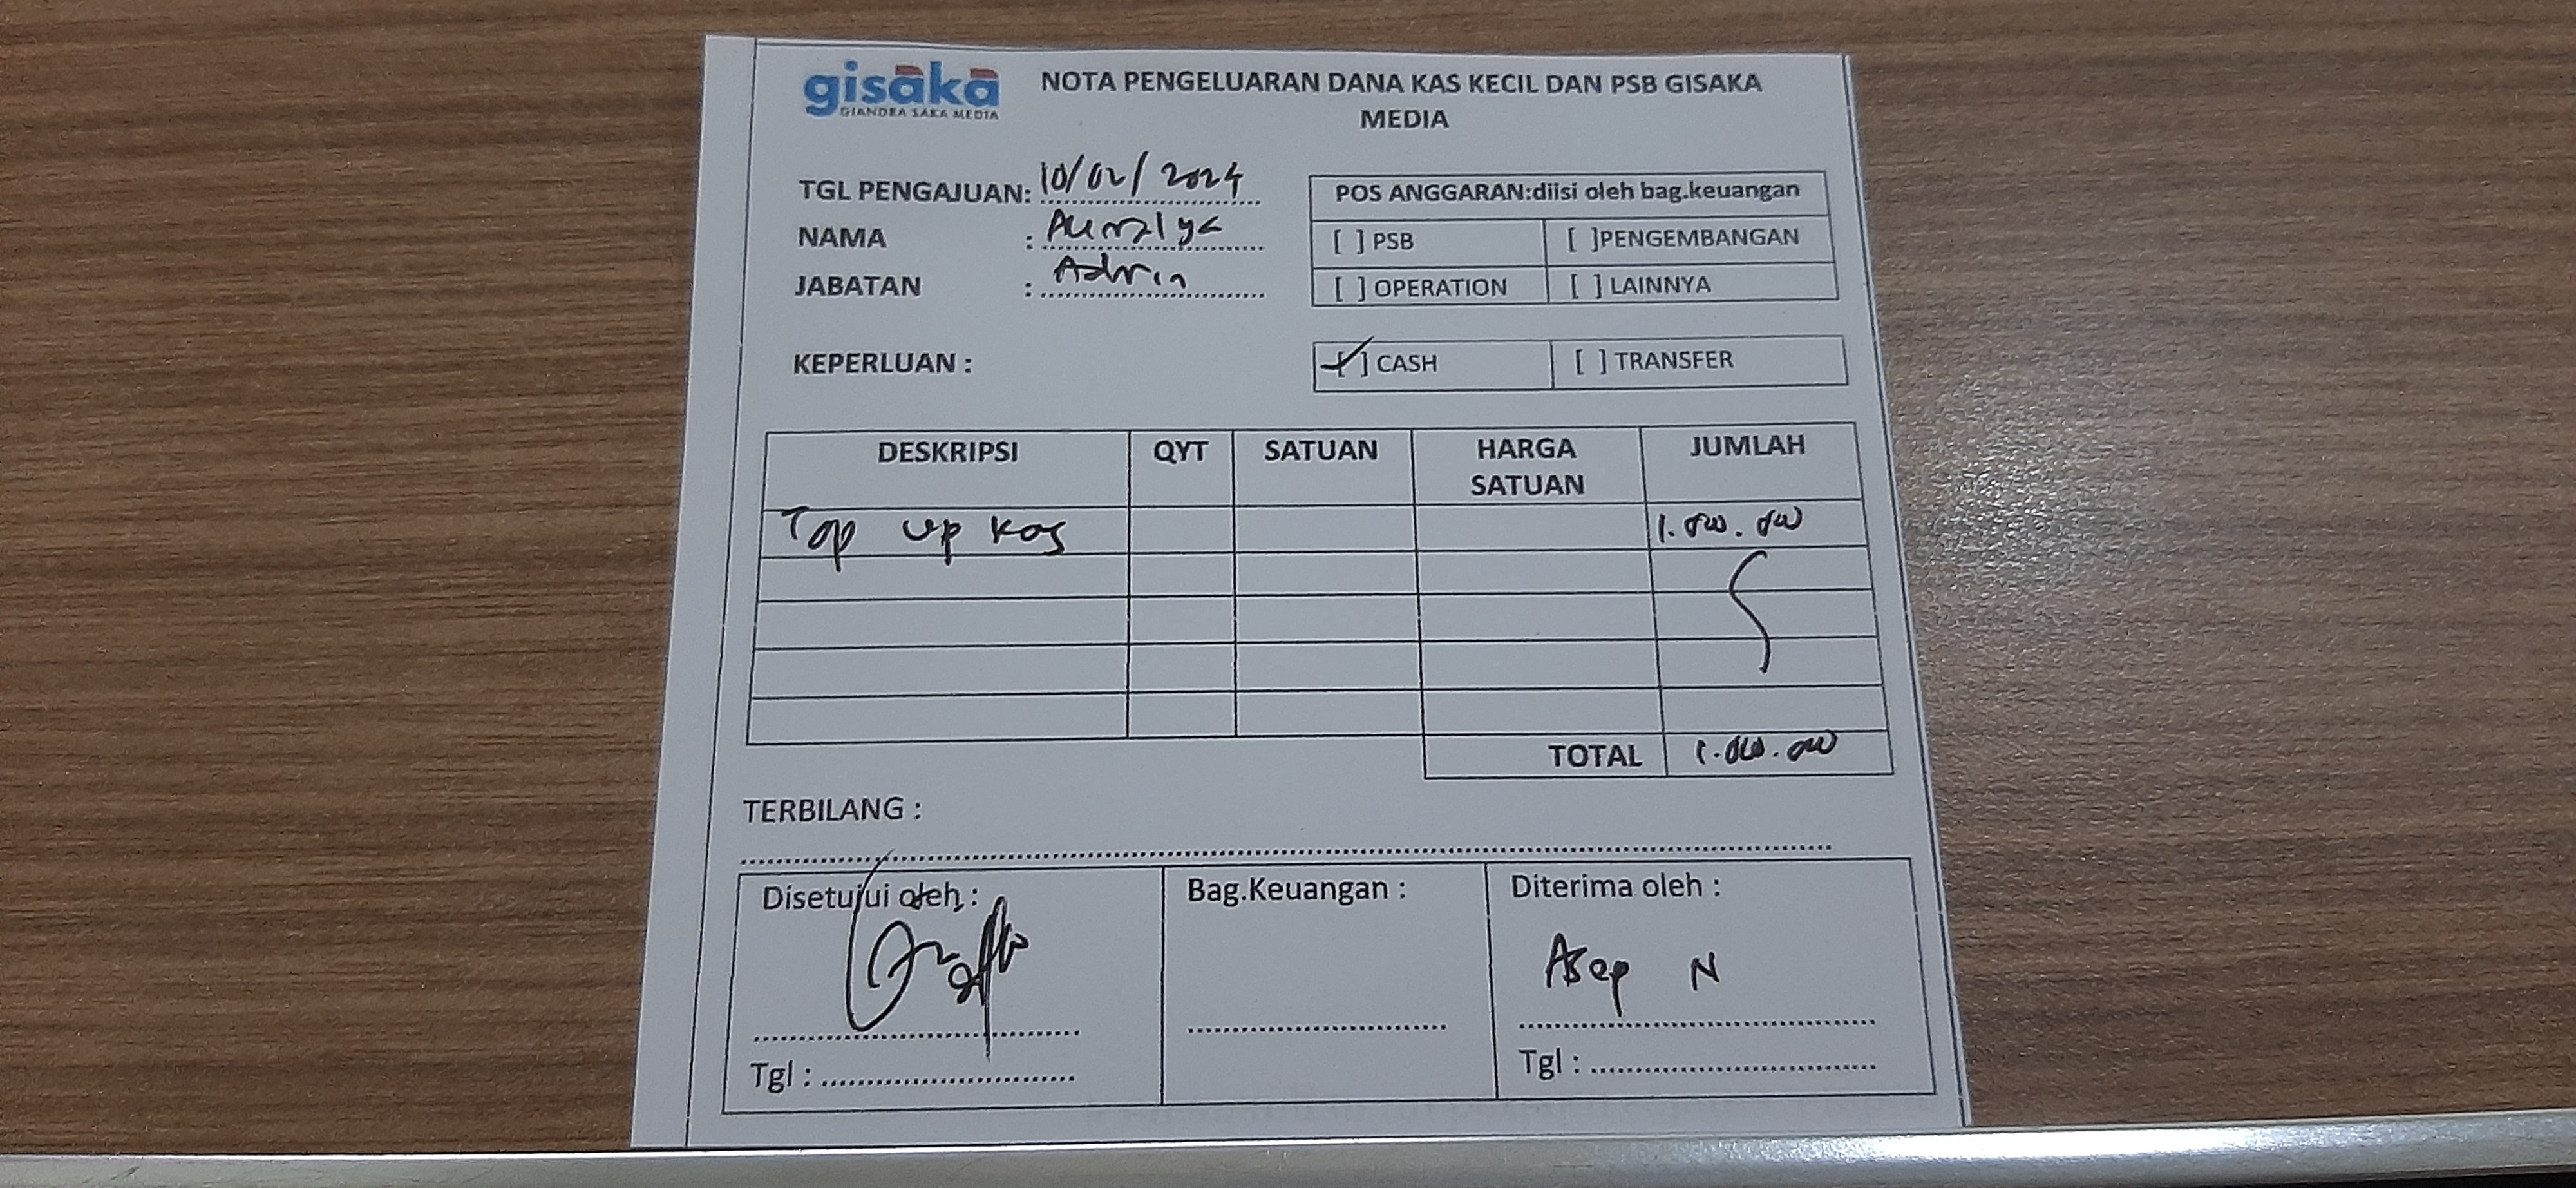 gisaka
GIANDRA SAKA MEDIA
NOTA PENGELUARAN DANA KAS KECIL DAN PSB GISAKA
MEDIA
TGL PENGAJUAN: 10/02/2024
NAMA :
JABATAN : Admin
POS ANGGARAN:diisi oleh bag.keuangan
[ ] PSB [ ]PENGEMBANGAN
[ ] OPERATION [ ] LAINNYA
KEPERLUAN :
[✓] CASH [ ] TRANSFER
DESKRIPSI QYT SATUAN HARGA SATUAN JUMLAH
Top up kas 1.000.000
TOTAL 1.000.000
TERBILANG :
Disetujui oleh : Bag.Keuangan : Diterima oleh :
Asep N
Tgl : Tgl :